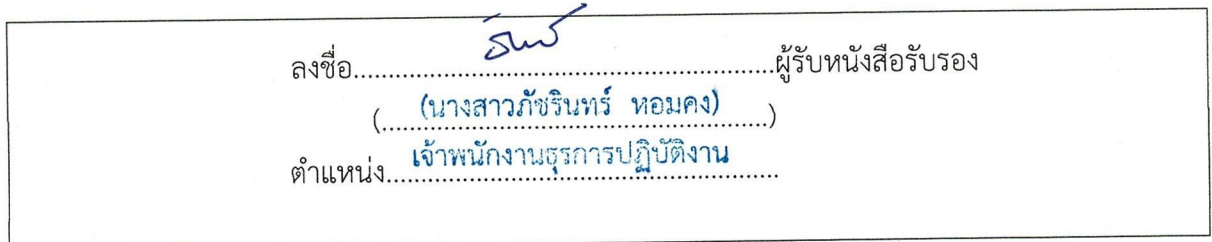 ลงชื่อ..........................................................ผู้รับหนังสือรับรอง
(นางสาวภัชรินทร์ หอมคง)
(......................................................)
เจ้าพนักงานธุรการปฏิบัติงาน
ตำแหน่ง......................................................